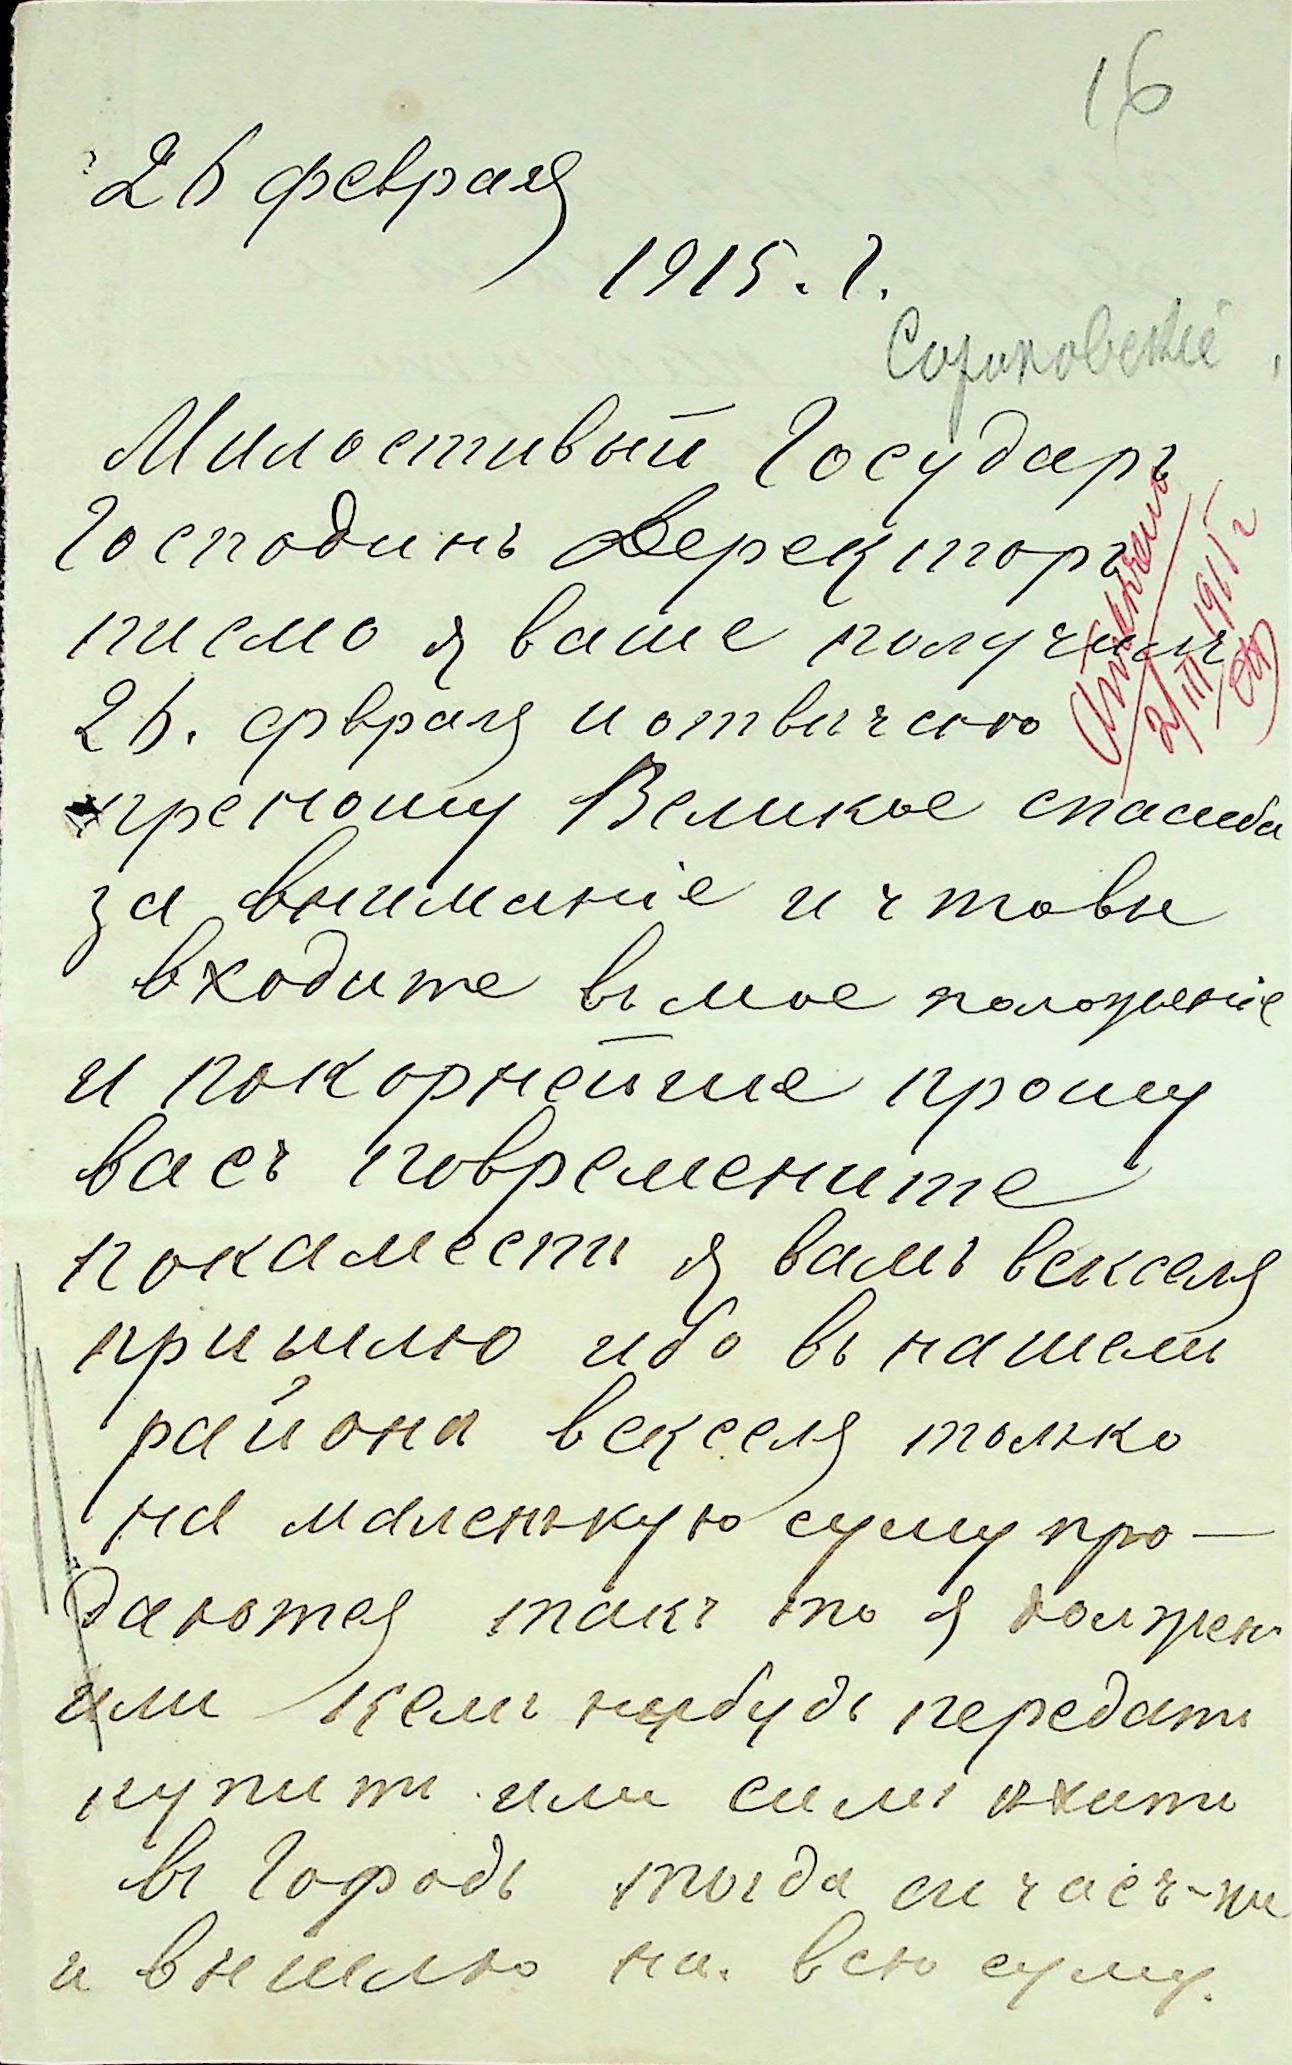 16
26 февраля
1915. г.
Милостивый Государь
Господинъ Деректоръ
писмо я ваше получилъ
26. февраля и отвичаю
преношу Великое спасиба
за внимание и что вы
входите въ мое положеніе
и покорнейше прошу
васъ повремените
покаместь я вамъ векселя
пришлю ибо въ нашемъ
района векселя только
на маленькую суму про—
даются такъ что я должен
или кемъ нибудь передать
купить или самъ ехить
въ Городъ тогда сичасъ-же
и вышлю на. всю суму.
Отвѣчено
2/III 1915 г